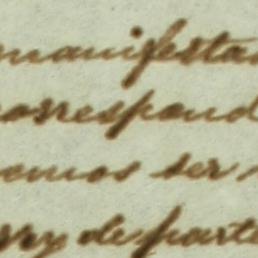 manifesta
correspond
emos ser
de parte